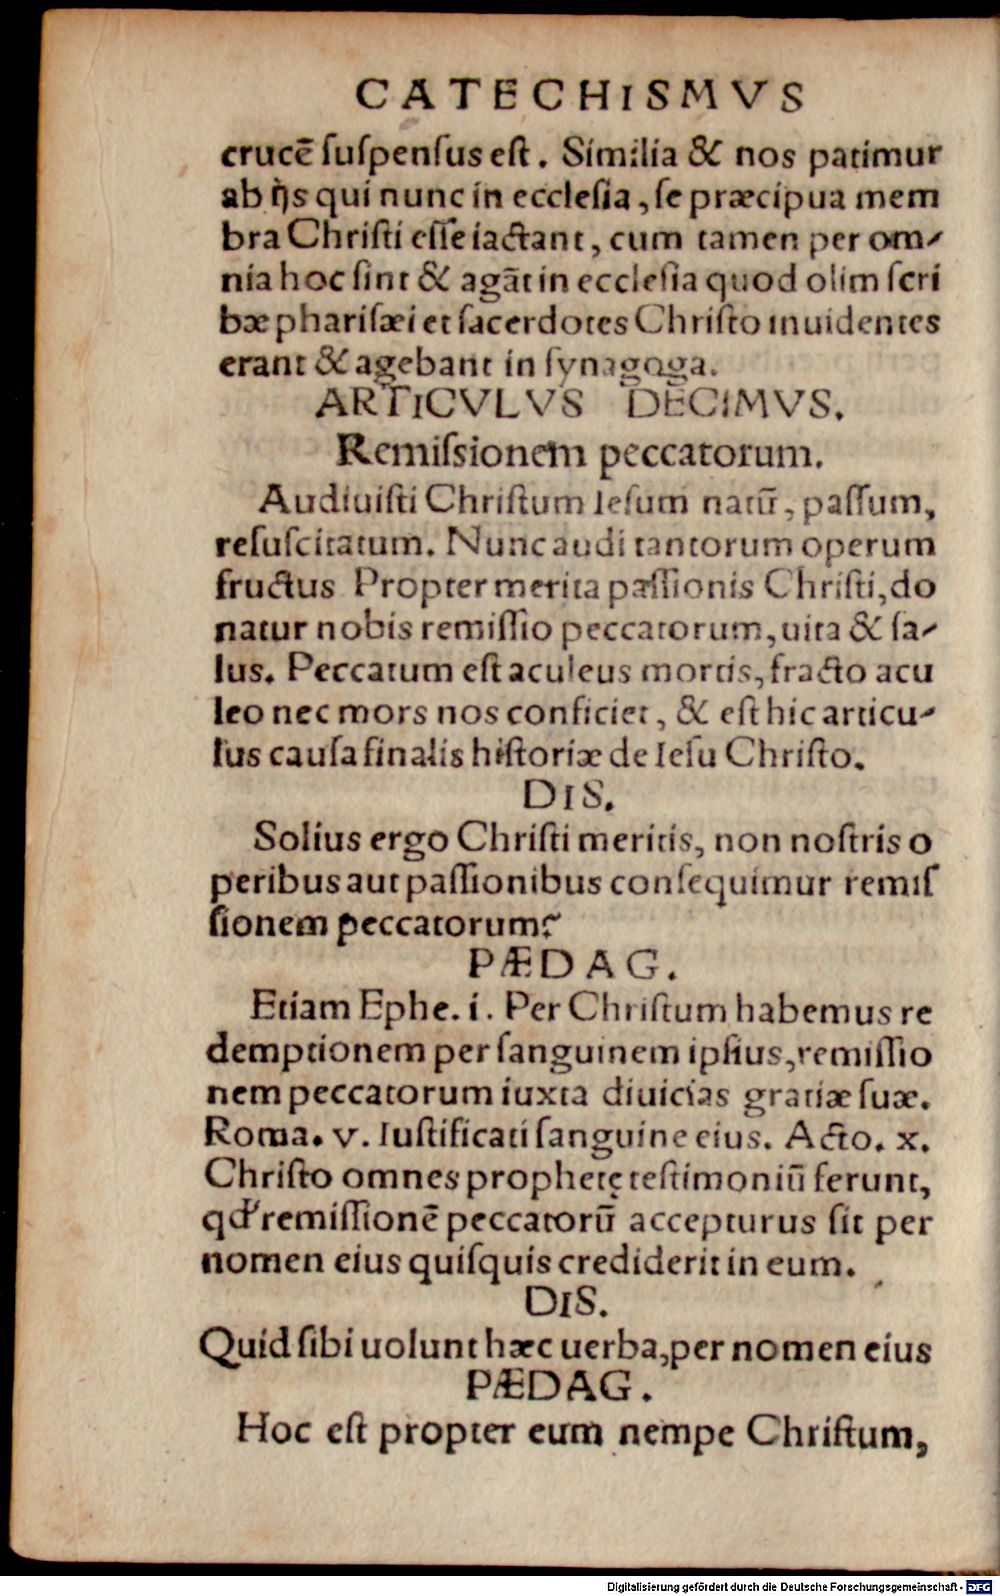 CATECHISMVS
crucē ſuſpenſus eſt. Similia & nos patimur
ab ijs qui nunc in eccleſia, ſe præcipua mem
bra Chriſti eſſe iactant, cum tamen per om-
nia hoc ſint & agāt in eccleſia quod olim ſcri
bæ phariſæi et ſacerdotes Chriſto inuidentes
erant & agebant in ſynagoga.
ARTICVLVS DECIMVS.
Remiſsionem peccatorum.
Audiuiſti Chriſtum Ieſum natū, paſſum,
reſuſcitatum. Nunc audi tantorum operum
fructus Propter merita paſſionis Chriſti, do
natur nobis remiſſio peccatorum, uita & ſa-
lus. Peccatum eſt aculeus mortis, fracto acu
leo nec mors nos conficiet, & eſt hic articu-
lus cauſa finalis hiſtoriæ de Ieſu Chriſto.
DIS.
Solius ergo Chriſti meritis, non noſtris o
peribus aut paſſionibus conſequimur remiſ
ſionem peccatorum?
PÆDAG.
Etiam Ephe. i. Per Chriſtum habemus re
demptionem per ſanguinem ipſius, remiſſio
nem peccatorum iuxta diuicias gratiæ ſuæ.
Roma. v. Iuſtificati ſanguine eius. Acto. x.
Chriſto omnes prophetę teſtimoniū ferunt,
qđ remiſſionē peccatorū accepturus ſit per
nomen eius quiſquis crediderit in eum.
DIS.
Quid ſibi uolunt hæc uerba, per nomen eius
PÆDAG.
Hoc eſt propter eum nempe Chriſtum,
Digitalisierung gefördert durch die Deutsche Forschungsgemeinschaft - DFG